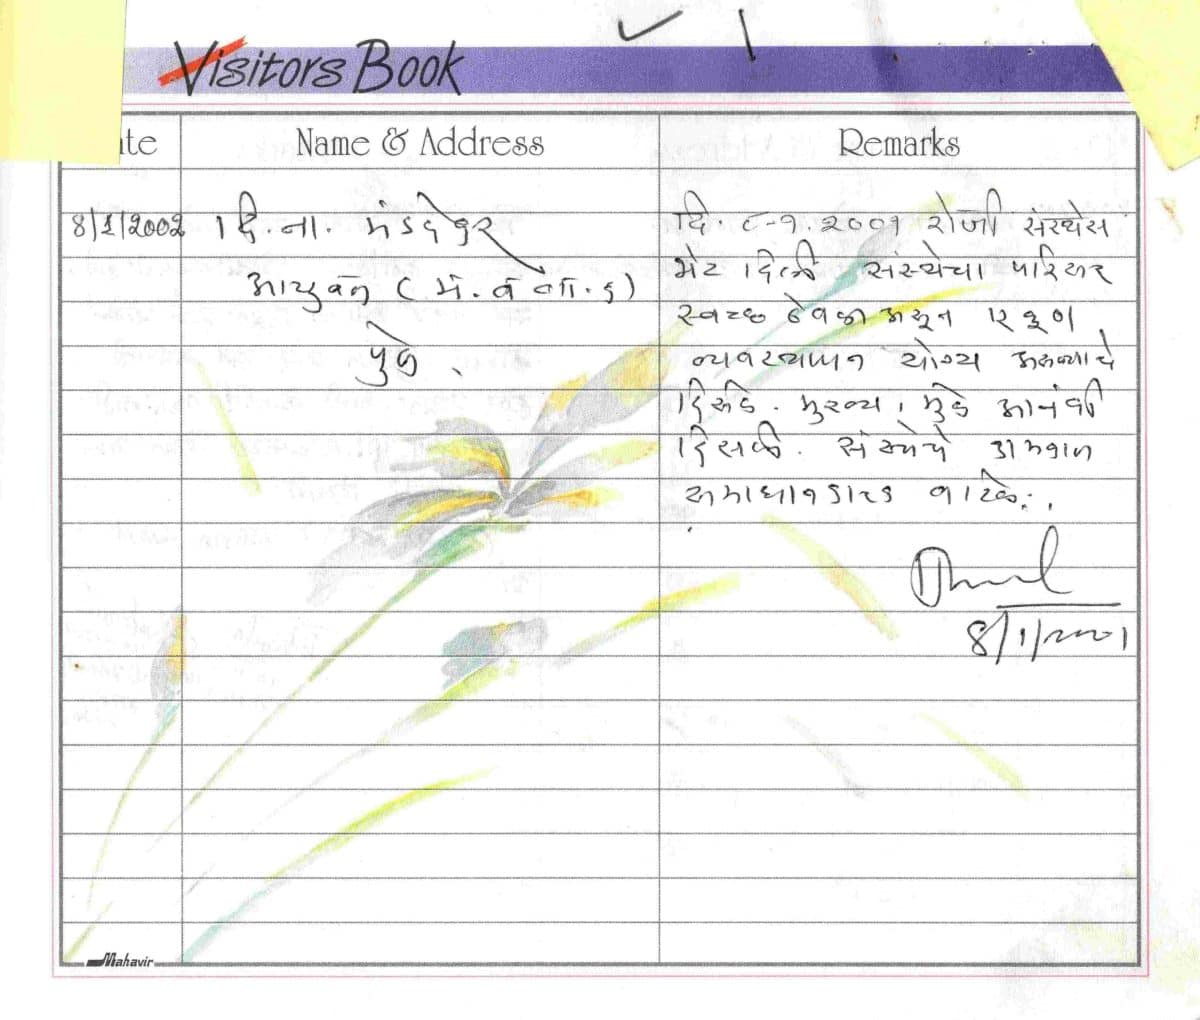 Visitors Book
ate Name & Address Remarks
8/1/2002 दि. ना. मंडलेकर
आयुक्त (म. व बा. वि)
पुणे.
दि. ८-१-२००१ रोजी संस्थेस
भेट दिली संस्थेचा परिसर
स्वच्छ ठेवला असून एकूण
व्यवस्थापन योग्य असल्याचे
दिसले. मुख्य, मुले आनंदी
दिसली. संस्थेचे कामकाज
समाधानकारक वाटले.
8/1/2001
Mahavir